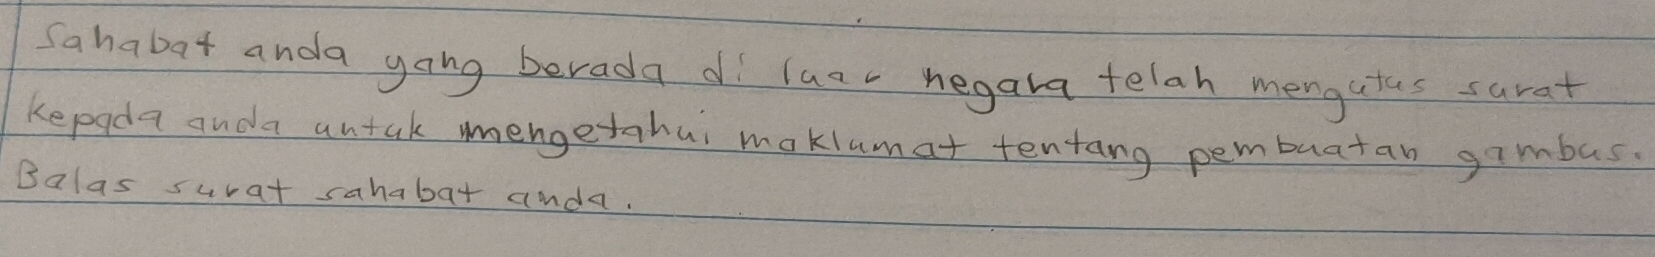 Sahabat anda yang berada di luar negara telah mengutus surat
kepada anda untuk mengetahui maklumat tentang pembuatan gambus.
Balas surat sahabat anda.